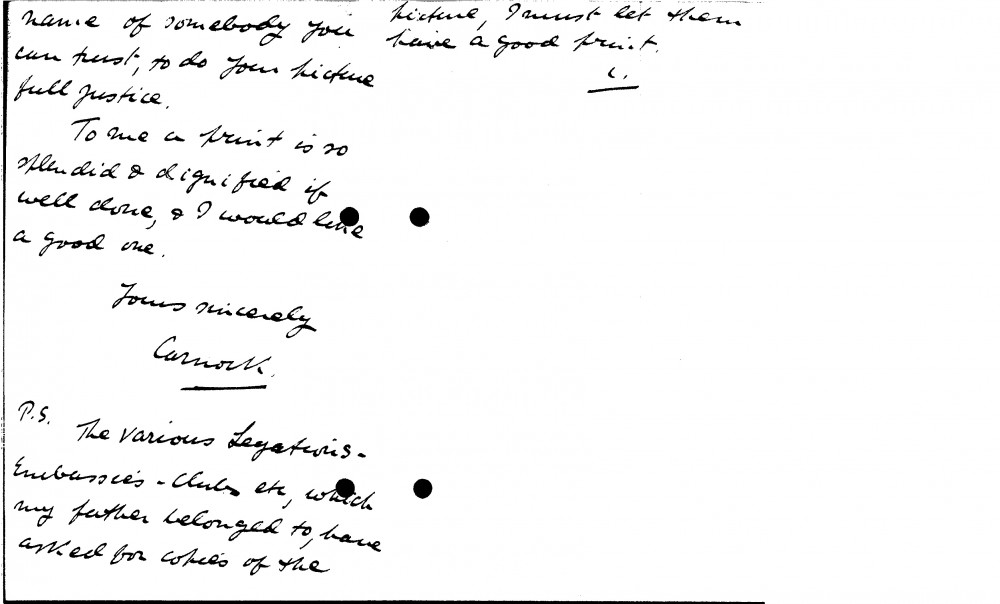 name of somebody you
can trust, to do your picture
full justice.
To me a print is so
splendid & dignified if
well done, & I would like
a good one.
Yours sincerely
Carnock.
P.S. The various Legations -
Embassies - Clubs etc, which
my father belonged to, have
asked for copies of the
picture, I must let them
have a good print.
C.